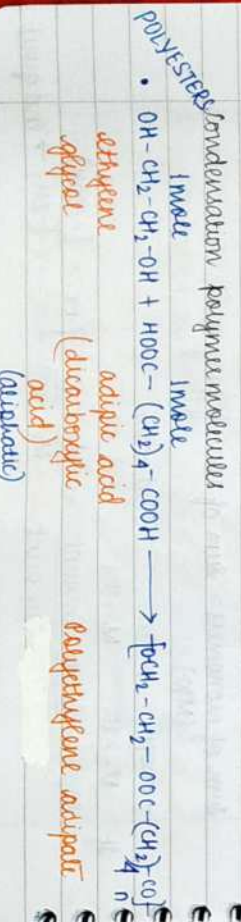 Condensation polymer molecules
POLYESTERS
1mole 1mole
• OH-CH2-CH2-OH + HOOC-(CH2)4-COOH ⟶ [OCH2-CH2-OOC-(CH2)4-CO]n
ethylene glycol
adipic acid
(dicarboxylic acid)
(aliphatic)
Polyethylene adipate